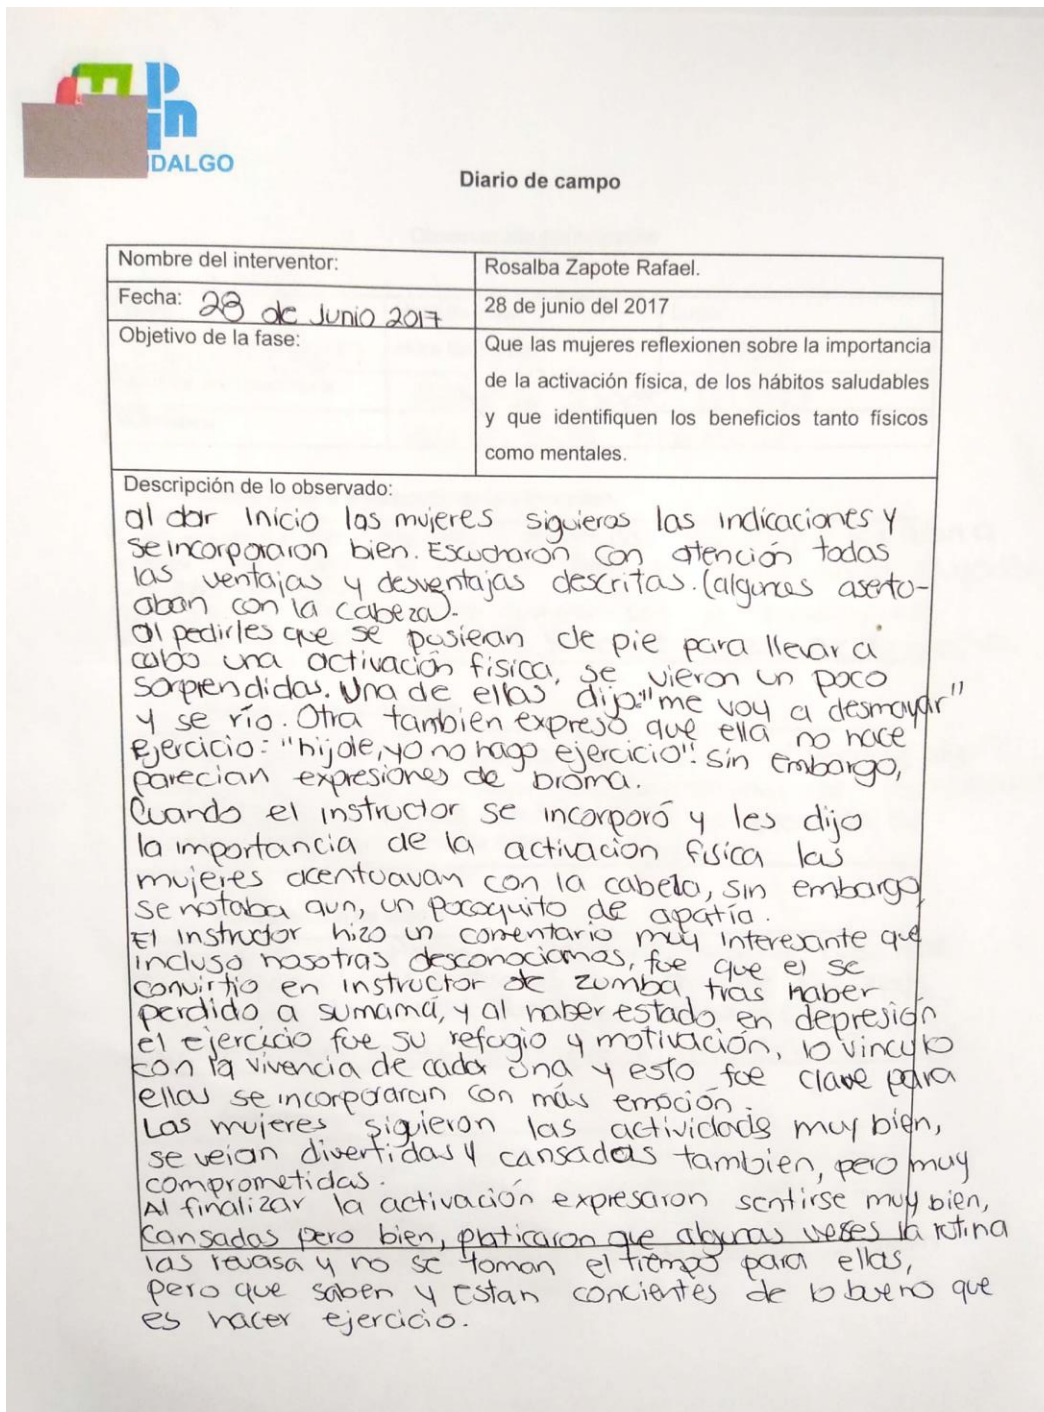 IDALGO
Diario de campo
Nombre del interventor:
Rosalba Zapote Rafael.
Fecha: 28 de Junio 2017
28 de junio del 2017
Objetivo de la fase:
Que las mujeres reflexionen sobre la importancia
de la activación física, de los hábitos saludables
y que identifiquen los beneficios tanto físicos
como mentales.
Descripción de lo observado:
al dar inicio las mujeres siguieros las indicaciones y
se incorporaron bien. Escucharon con atención todas
las ventajas y desventajas descritas. (algunas aserto-
aban con la cabeza).
al pedirles que se pusieran de pie para llevar a
cabo una activación física, se vieron un poco
sorprendidas. Una de ellas dijo: "me voy a desmayar"
y se río. Otra tambien expresó que ella no hace
ejercicio: "hijole, yo no hago ejercicio". Sin embargo,
parecian expresiones de broma.
Cuando el instructor se incorporó y les dijo
la importancia de la activacion fisica las
mujeres acentuavan con la cabeza, sin embargo
se notaba aun, un pocoquito de apatía.
El instructor hizo un comentario muy interesante que
incluso nosotras desconociamos, fue que el se
convirtio en instructor de zumba tras haber
perdido a sumamá, y al haber estado en depresión
el ejercicio fue su refugio y motivación, lo vinculo
con la vivencia de cada una y esto fue clave para
ellas se incorporaran con más emoción.
Las mujeres siguieron las actividades muy bien,
se veian divertidas y cansadas tambien, pero muy
comprometidas.
Al finalizar la activación expresaron sentirse muy bien,
cansadas pero bien, platicaron que algunas veses la rutina
las revasa y no se toman el tiempo para ellas,
pero que saben y estan concientes de lo bueno que
es hacer ejercicio.